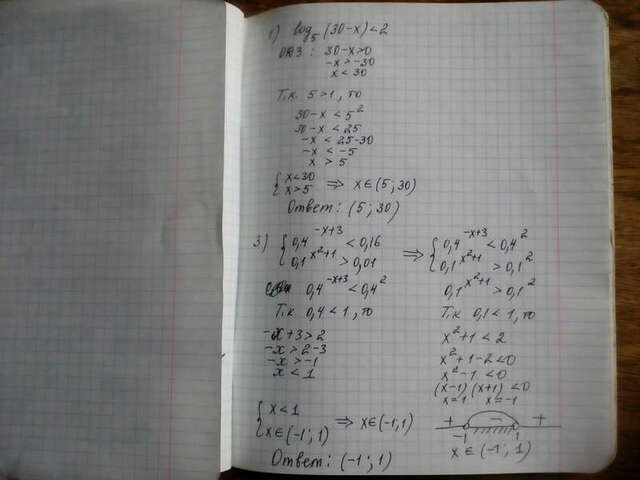 1) log₅(30-x)<2
ОДЗ: 30-x>0
-x>-30
x<30
Т.к. 5>1, то
30-x<5²
30-x<25
-x<25-30
-x<-5
x>5
{x<30
{x>5 ⇒ x∈(5;30)
Ответ: (5;30)
3.) {0,4^(-x+3)<0,16
{0,1^(x²+1)>0,01
⇒ {0,4^(-x+3)<0,4²
{0,1^(x²+1)>0,1²
0,4^(-x+3)<0,4²
Т.к 0,4<1, то
-x+3>2
-x>2-3
-x>-1
x<1
0,1^(x²+1)>0,1²
Т.к 0,1<1, то
x²+1<2
x²+1-2<0
x²-1<0
(x-1)(x+1)<0
x=1 x=-1
+ - +
-1 1
x∈(-1;1)
{x<1
{x∈(-1;1) ⇒ x∈(-1;1)
Ответ: (-1;1)